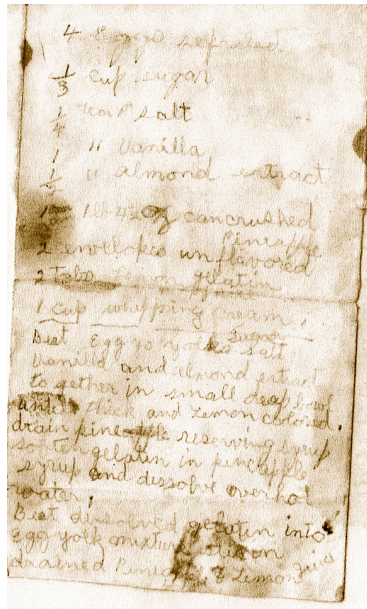 4 Eggs seprated
1/3 cup sugar
1/4 teasp salt
1 " Vanilla
1/2 " almond extract
1 can 1 lb 4½ oz can crushed
Pineapple
2 envelopes unflavored
gelatin
2 Tabs Lemon
1 cup whipping cream,
Beat Egg yolks sugar salt
Vanilla and almond extract
to gether in small deep bowl
until thick and Lemon colored.
drain pineapple reserving syrup
soften gelatin in pineapple
syrup and dissolve over hot
water,
Beat dissolved gelatin into
Egg yolk mixture
drained Pineapple & Lemon juice